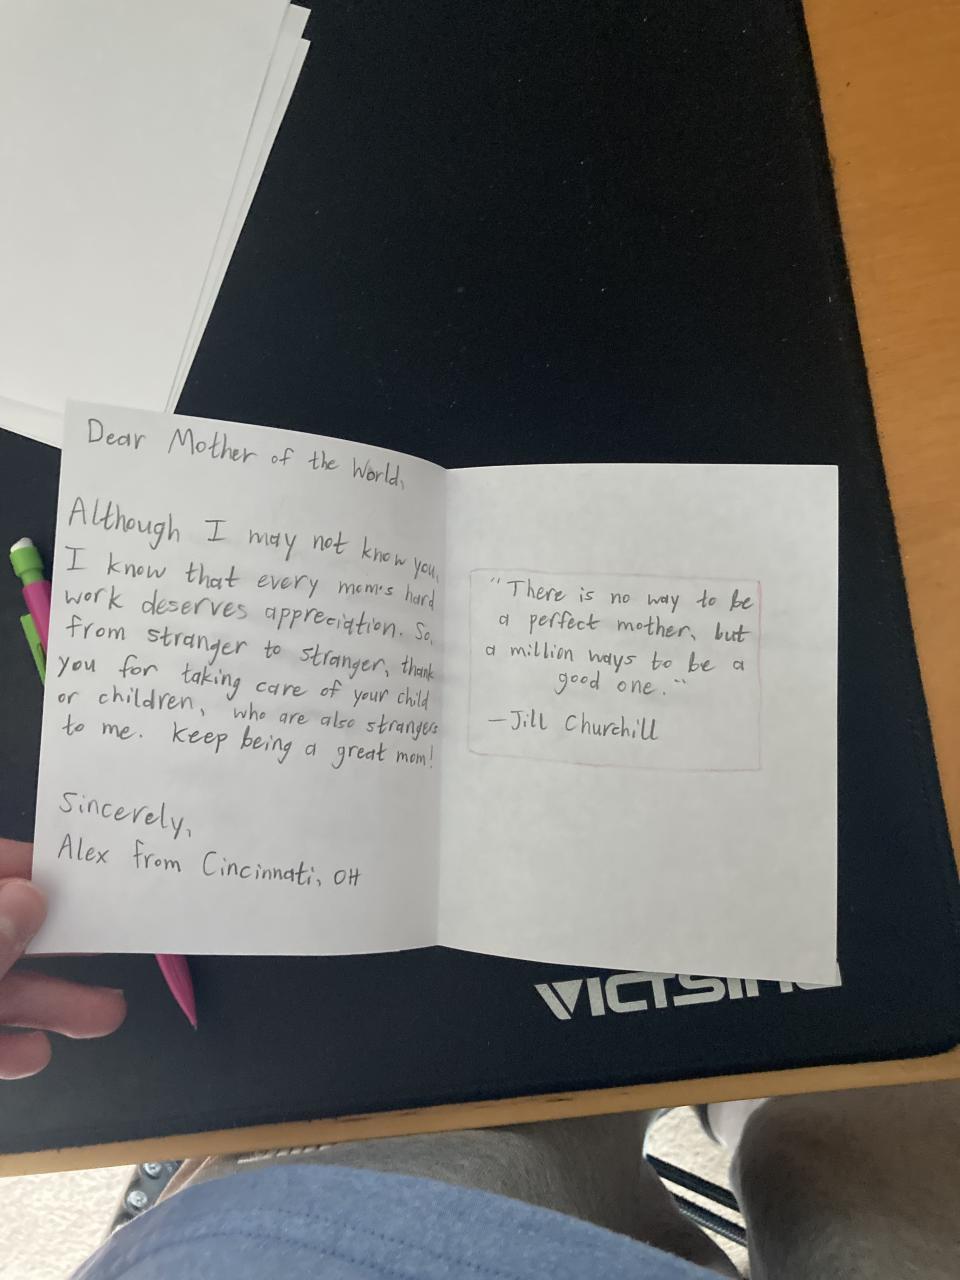 Dear Mother of the World,
Although I may not know you,
I know that every mom's hard
work deserves appreciation. So,
from stranger to stranger, thank
you for taking care of your child
or children, who are also strangers
to me. Keep being a great mom!
Sincerely,
Alex from Cincinnati, OH
"There is no way to be
a perfect mother, but
a million ways to be a
good one."
—Jill Churchill